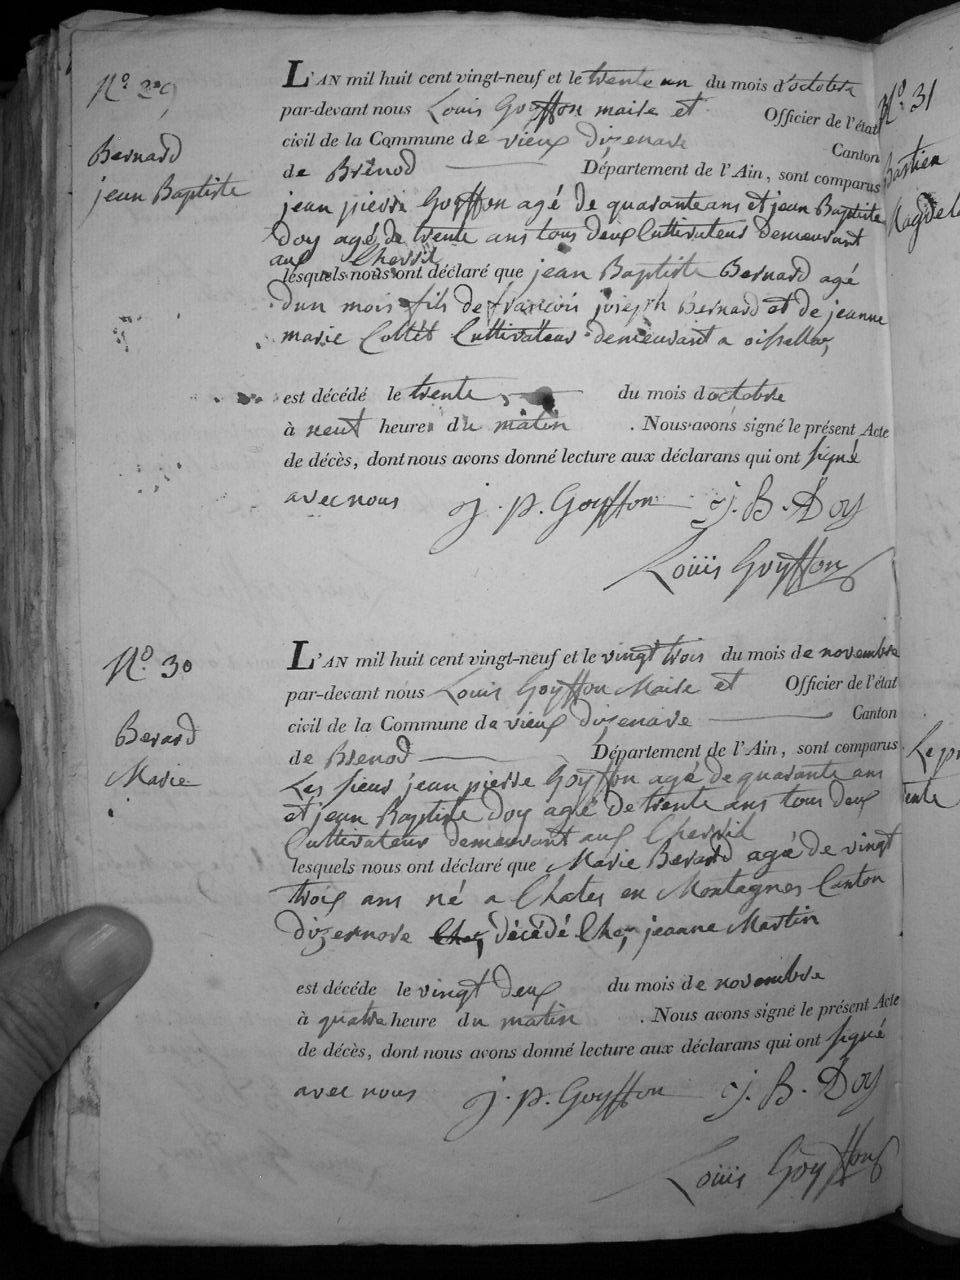 N.º 29
Bernard
jean Baptiste
L'AN mil huit cent vingt-neuf et le trente un du mois d'octobre
par-devant nous Louis Goyffon maire et Officier de l'état
civil de la Commune de vieux dizenave Canton
de Brénod Département de l'Ain, sont comparus
jean pierre Goyffon agé de quarante ans et jean Baptiste
Doy agé de trente ans tous deux Cultivateurs demeurant
aux Chevril
lesquels nous ont déclaré que jean Baptiste Bernard agé
dun mois fils de françois joseph Bernard et de jeanne
marie Collét Cultivateur demeurant a oissellaz
est décédé le trente du mois d octobre
à neuf heures du matin . Nous avons signé le présent Acte
de décès, dont nous avons donné lecture aux déclarans qui ont signé
avec nous j. p. Goyffon j. B. Doy
Louis Goyffon
N.º 30
Berard
Marie
L'AN mil huit cent vingt-neuf et le vingt trois du mois de novembre
par-devant nous Louis Goyffon Maire et Officier de l'état
civil de la Commune de vieux dizenave Canton
de Brenod Département de l'Ain, sont comparus
Les sieur jean pierre Goyffon agé de quarante ans
et jean Baptiste Doy agé de trente ans tous deux
Cultivateur demeurant aux Chevril
lesquels nous ont déclaré que Marie Berard agé de vingt
trois ans né a Chates en Montagnes Canton
dizernore Chez décédé Chez jeanne Martin
est décéde le vingt deux du mois de novembre
à quatre heure du matin . Nous avons signé le présent Acte
de décès, dont nous avons donné lecture aux déclarans qui ont signé
avec nous j. p. Goyffon j. B. Doy
Louis Goyffon
N.º 31
Bastien